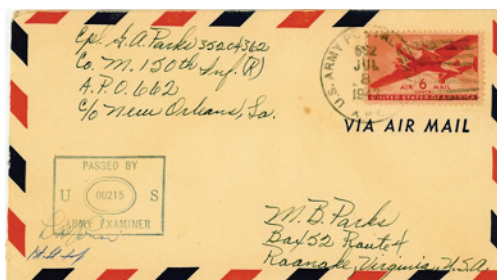 Cpl. G. A. Parks 35204362
Co. M. 150th Inf. (R)
A.P.O. 662
c/o New Orleans, La.
U.S. ARMY
662
JUL
8
AIR 6 MAIL
CENTS
UNITED STATES OF AMERICA
VIA AIR MAIL
PASSED BY
U 00215 S
ARMY EXAMINER
M. B. Parks
Box 52 Route 4
Roanoke, Virginia, U.S.A.